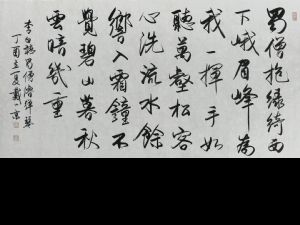 蜀僧抱綠綺西
下峨眉峰為
我一揮手如
聽萬壑松客
心洗流水餘
響入霜鐘不
覺碧山暮秋
雲暗幾重
李白聽蜀僧濬彈琴
丁酉立夏